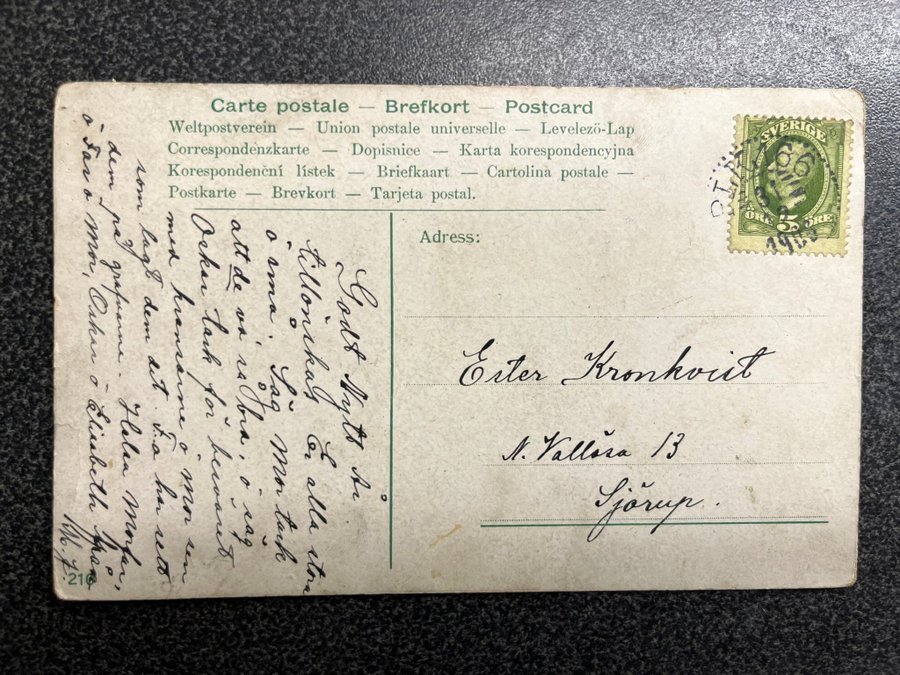 Carte postale — Brefkort — Postcard
Weltpostverein — Union postale universelle — Levelező-Lap
Correspondenzkarte — Dopisnice — Karta korespondencyjna
Korespondenční lístek — Briefkaart — Cartolina postale —
Postkarte — Brevkort — Tarjeta postal.
SVERIGE
5
ÖRE ÖRE
Adress:
Ester Kronkvist
N. Vallösa 13
Sjörup.
Godt Nytt År
tillönskas Er alla stora
o små. Säg Mor tack
att de va så bra, o säg
Oskar tack för besväret
med kransarne o Mor sen
som lagt dem dit. Fa har sett
dem på grafvarne. Helsa Morfar,
o Far o Mor, Oskar o Elisabeth
216